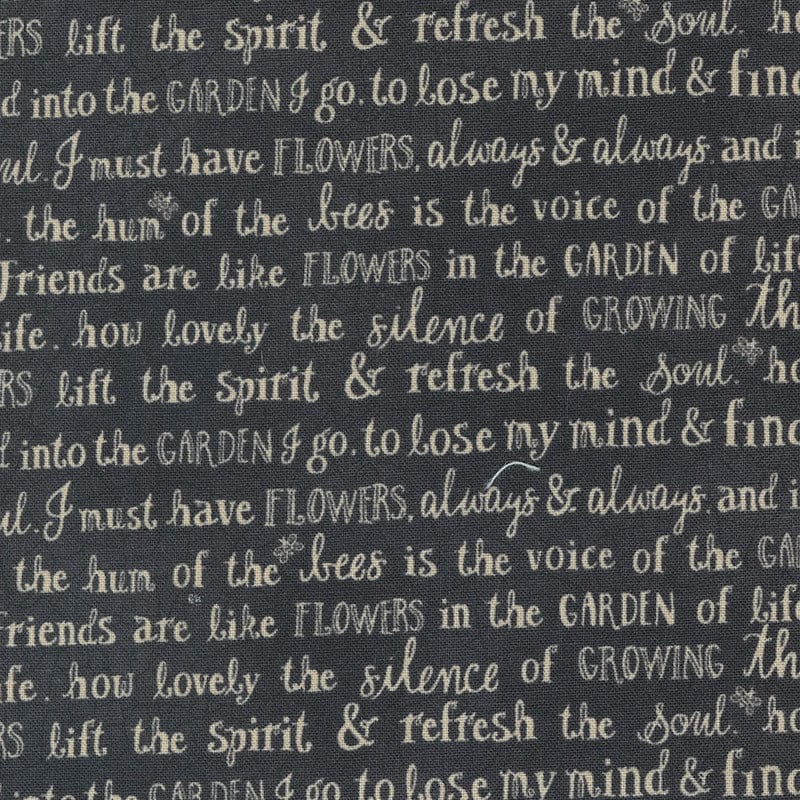 ERS lift the spirit & refresh the soul. ho
d into the GARDEN I go. to lose my mind & find
ul. I must have FLOWERS, always & always. and i
. the hum of the bees is the voice of the GA
Friends are like FLOWERS in the GARDEN of life
ife. how lovely the silence of GROWING th
ERS lift the spirit & refresh the soul. ho
d into the GARDEN I go. to lose my mind & find
ul. I must have FLOWERS, always & always. and i
the hum of the bees is the voice of the GA
friends are like FLOWERS in the GARDEN of life
ife. how lovely the silence of GROWING th
ERS lift the spirit & refresh the soul. ho
into the GARDEN I go. to lose my mind & find